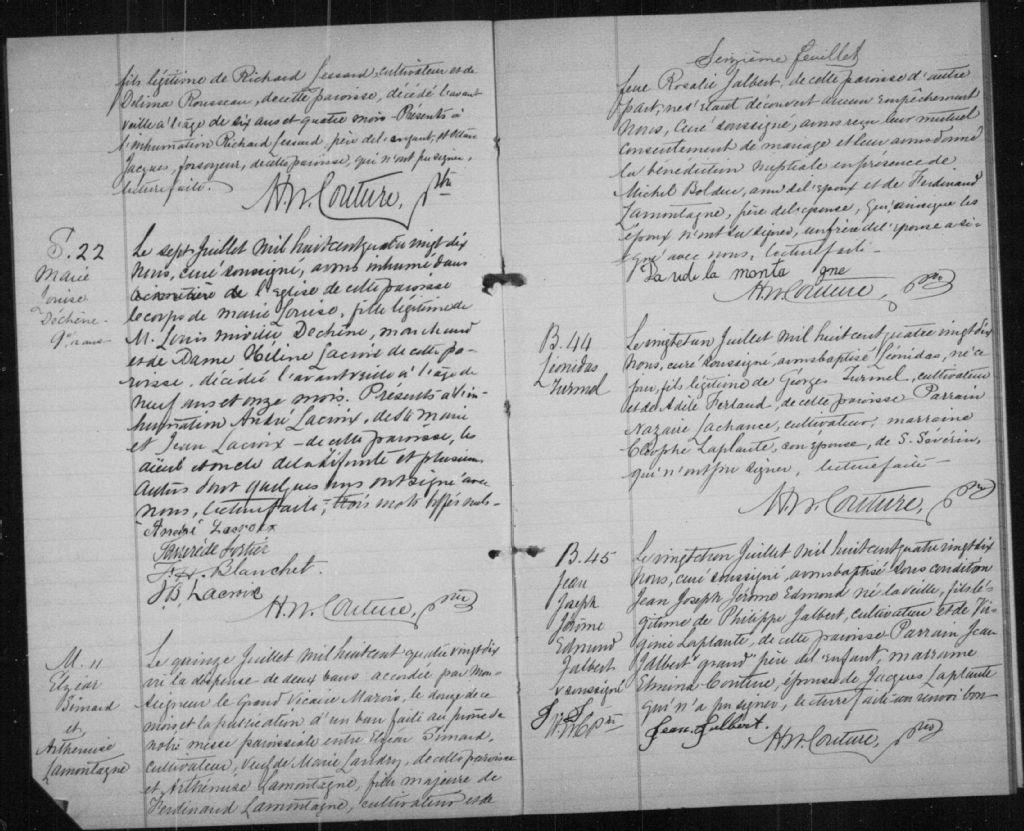 fils légitime de Richard Lessard cultivateur et de
Delima Rousseau, de cette paroisse, décédé l'avant
veille à l'âge de six ans et quatre mois. Présents à
l'inhumation Richard Lessard, père de l'enfant, et
Jacques, fossoyeur, de cette paroisse, qui n'ont pu signer,
lecture faite.
H. N. Couture, Ptre
S. 22
Marie
Louise
Dechène
9 ans
Le sept Juillet mil huit cent quatre vingt dix
Nous, curé soussigné, avons inhumé dans
de l'Eglise de cette paroisse
le corps de Marie Louise, fille légitime de
M. Louis Miville Dechène, marchand
et de Dame Hélène Lacroix de cette pa-
roisse, décédée l'avant veille à l'âge de
neuf ans et onze mois. Présents à l'in-
humation André Lacroix, de Ste Marie
et Jean Lacroix - de cette paroisse, les
aïeul et oncle de la défunte et plusieurs
autres dont quelques uns ont signé avec
nous, lecture faite, trois mots rayés nuls -
André Lacroix
Fortier
Blanchet.
Lacroix
H. N. Couture, ptre
M. 11
Elzéar
Simard
et
Arthémise
Lamontagne
Le quinze Juillet mil huit cent quatre vingt dix
vu la dispense de deux bans accordée par Mon-
seigneur le Grand Vicaire Marois, le douze de ce
mois et la publication d'un ban faite au prône de
notre messe paroissiale entre Elzéar Simard,
cultivateur, veuf de Marie Landry, de cette paroisse
et Arthémise Lamontagne, fille majeure de
Ferdinand Lamontagne, cultivateur et de
Seizième feuillet
feue Rosalie Jalbert, de cette paroisse d'autre
part, ne s'étant découvert aucun empêchement
Nous, Curé soussigné, avons reçu leur mutuel
consentement de mariage et leur avons donné
la bénédiction nuptiale en présence de
Michel Bolduc, ami de l'époux et de Ferdinand
Lamontagne, père de l'épouse, qui, ainsi que les
époux n'ont su signer, un frère de l'épouse a si-
gné avec nous, lecture faite -
la monta gne
H. N. Couture, ptre
B. 44
Léonidas
Turmel
Le vingt et un Juillet mil huit cent quatre vingt dix
Nous, curé soussigné, avons baptisé Léonidas, né ce
jour, fils légitime de Georges Turmel, cultivateur
et de Adèle Ferland, de cette paroisse Parrain
Nazaire Lachance, cultivateur, marraine
Cléophe Laplante, son épouse, de S. Séverin,
qui n'ont pu signer, lecture faite -
H. N. Couture, ptre
B. 45
Jean
Joseph
Jérôme
Edmund
Jalbert
x soussigné
Le vingt et un Juillet mil huit cent quatre vingt dix
Nous, curé soussigné, avons baptisé sous condition
Jean Joseph Jérôme Edmond né la veille, fils lé-
gitime de Philippe Jalbert, cultivateur et de Vir-
ginie Laplante, de cette paroisse Parrain Jean
Jalbert x grand père de l'enfant, marraine
Elmina Couture, épouse de Jacques Laplante
qui n'a pu signer, lecture faite un renvoi bon -
Jean Jalbert.
H. N. Couture, ptre